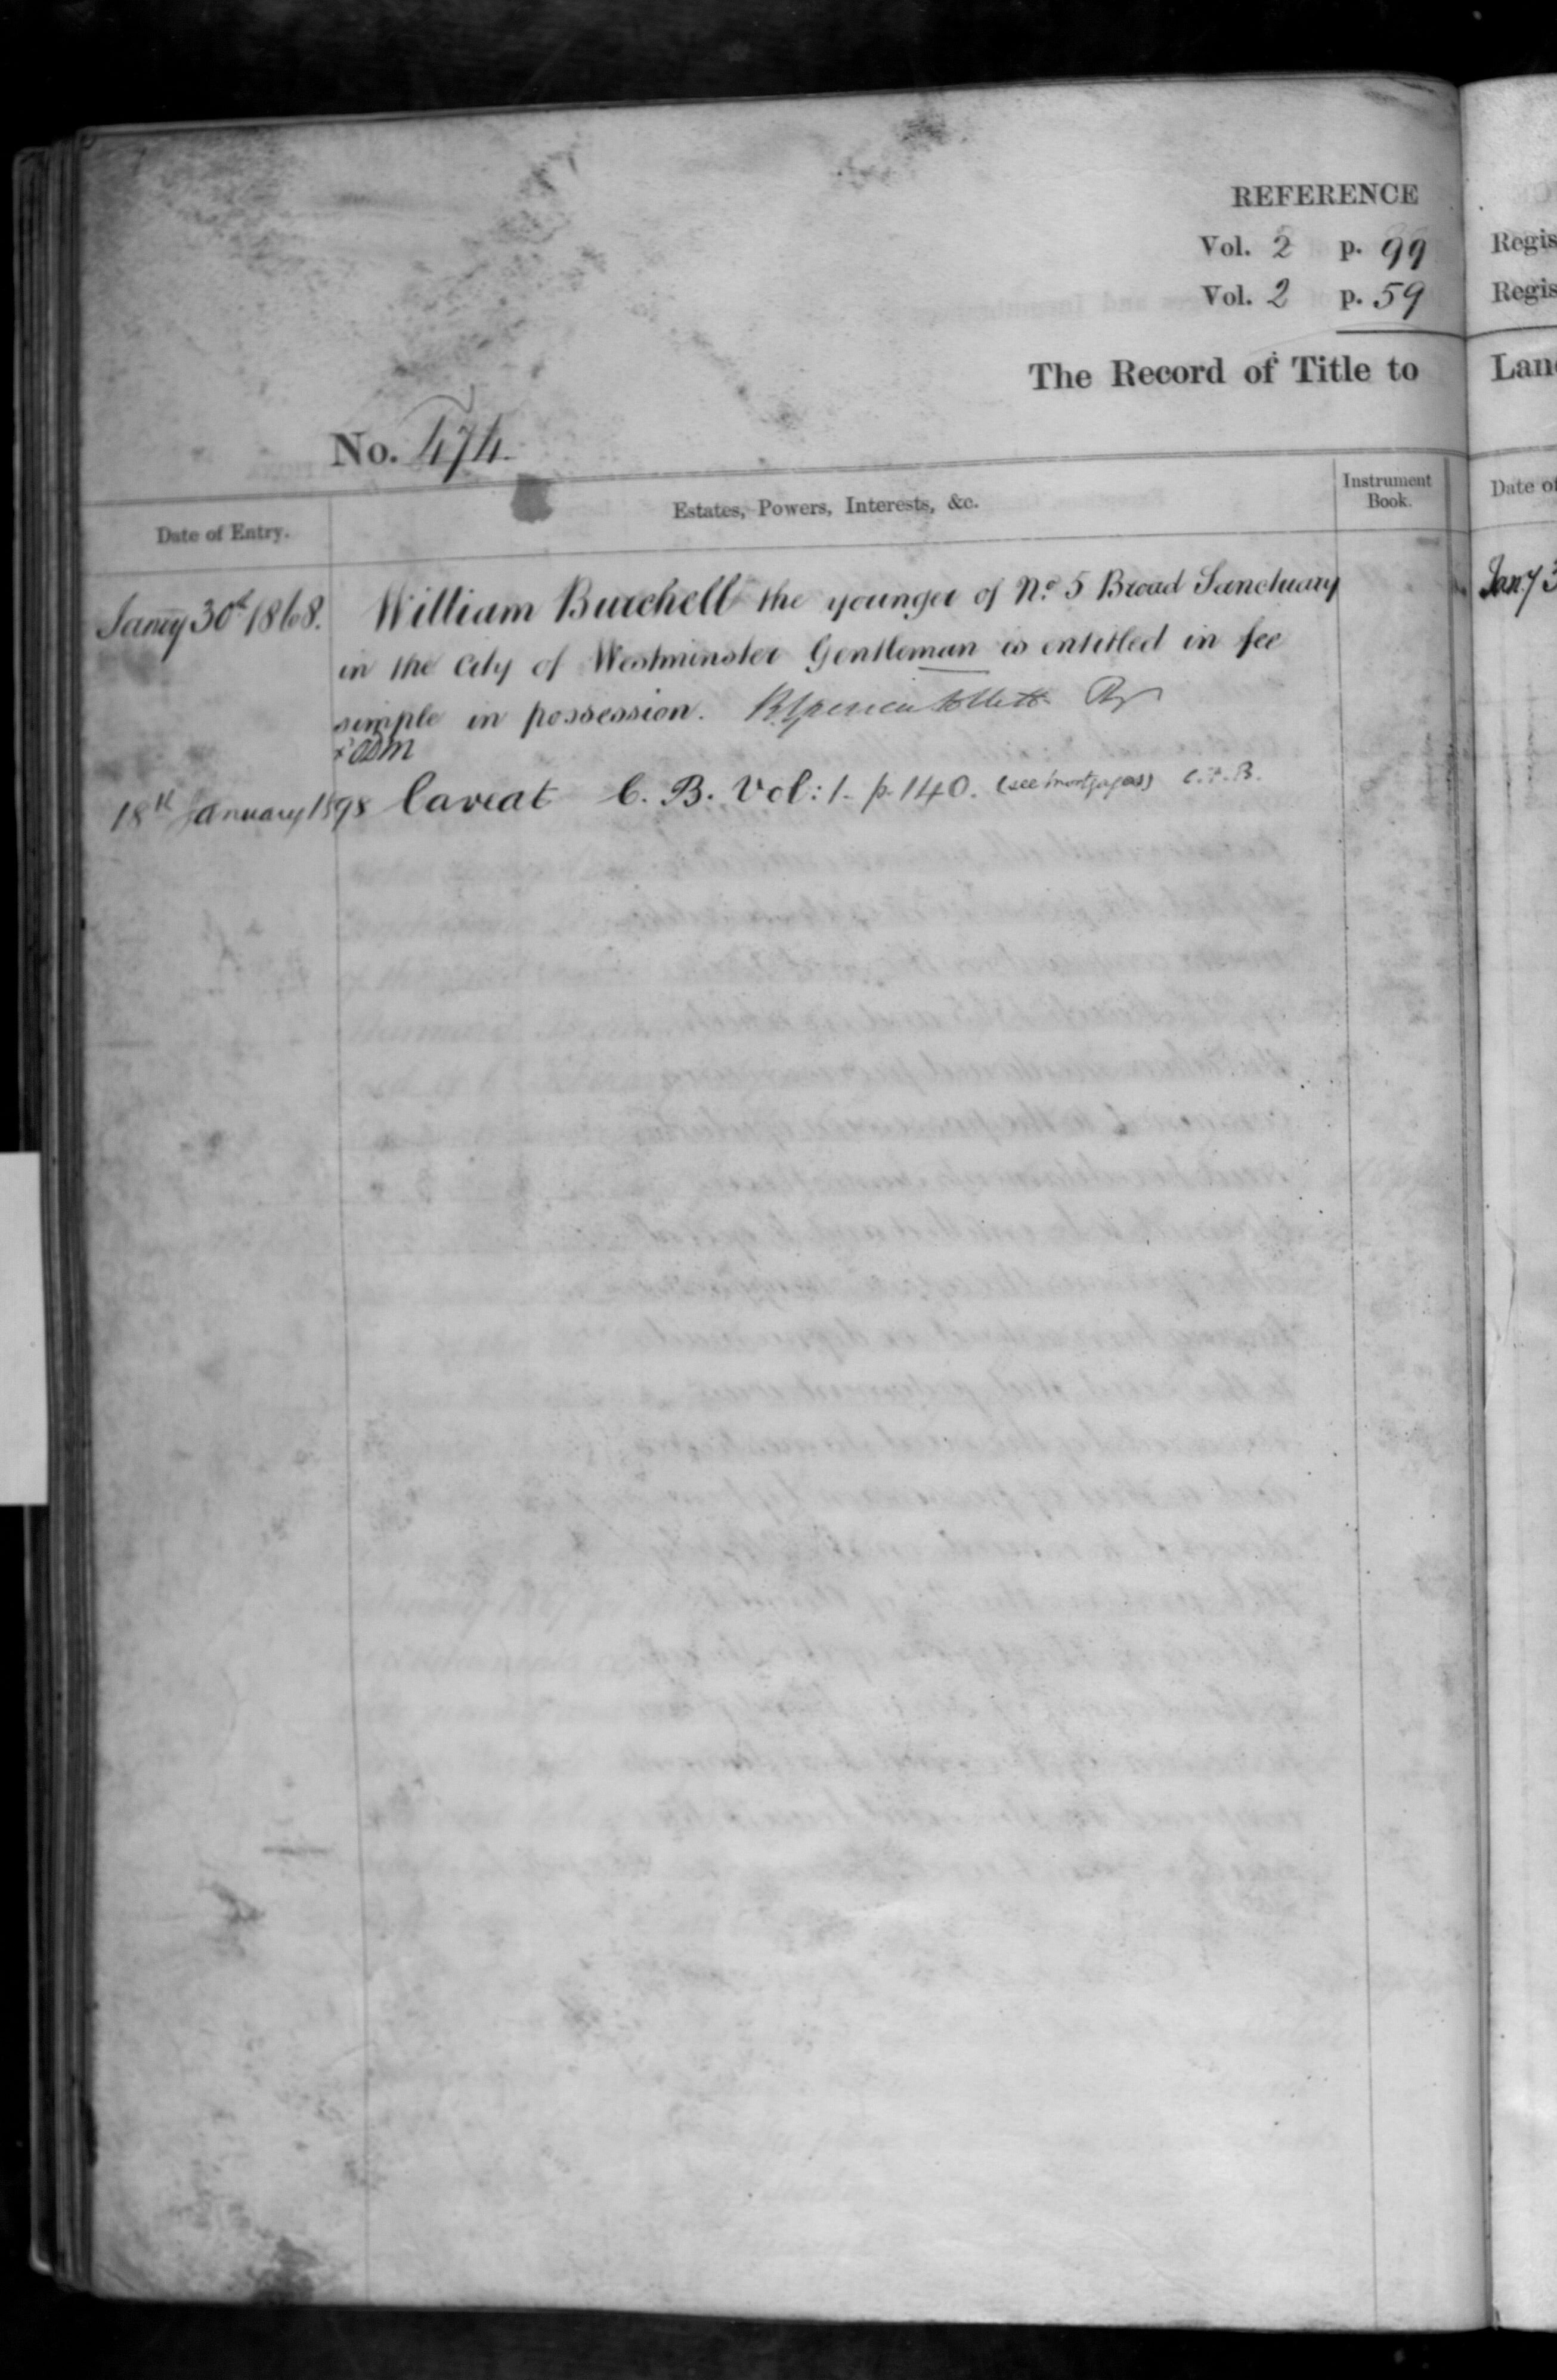 REFERENCE
Vol. 2 p. 99
Vol. 2 p. 59
The Record of Title to
No. 474
Date of Entry.
Estates, Powers, Interests, &c.
Instrument
Book.
Jany 30th 1868. William Burchell the younger of No. 5 Broad Sanctuary
in the City of Westminster Gentleman is entitled in fee
simple in possession.
18th January 1898 Caveat C. B. Vol: 1. p. 140. (see mortgages) C.F.B.
Regis
Regis
Land
Date of
Jany 3